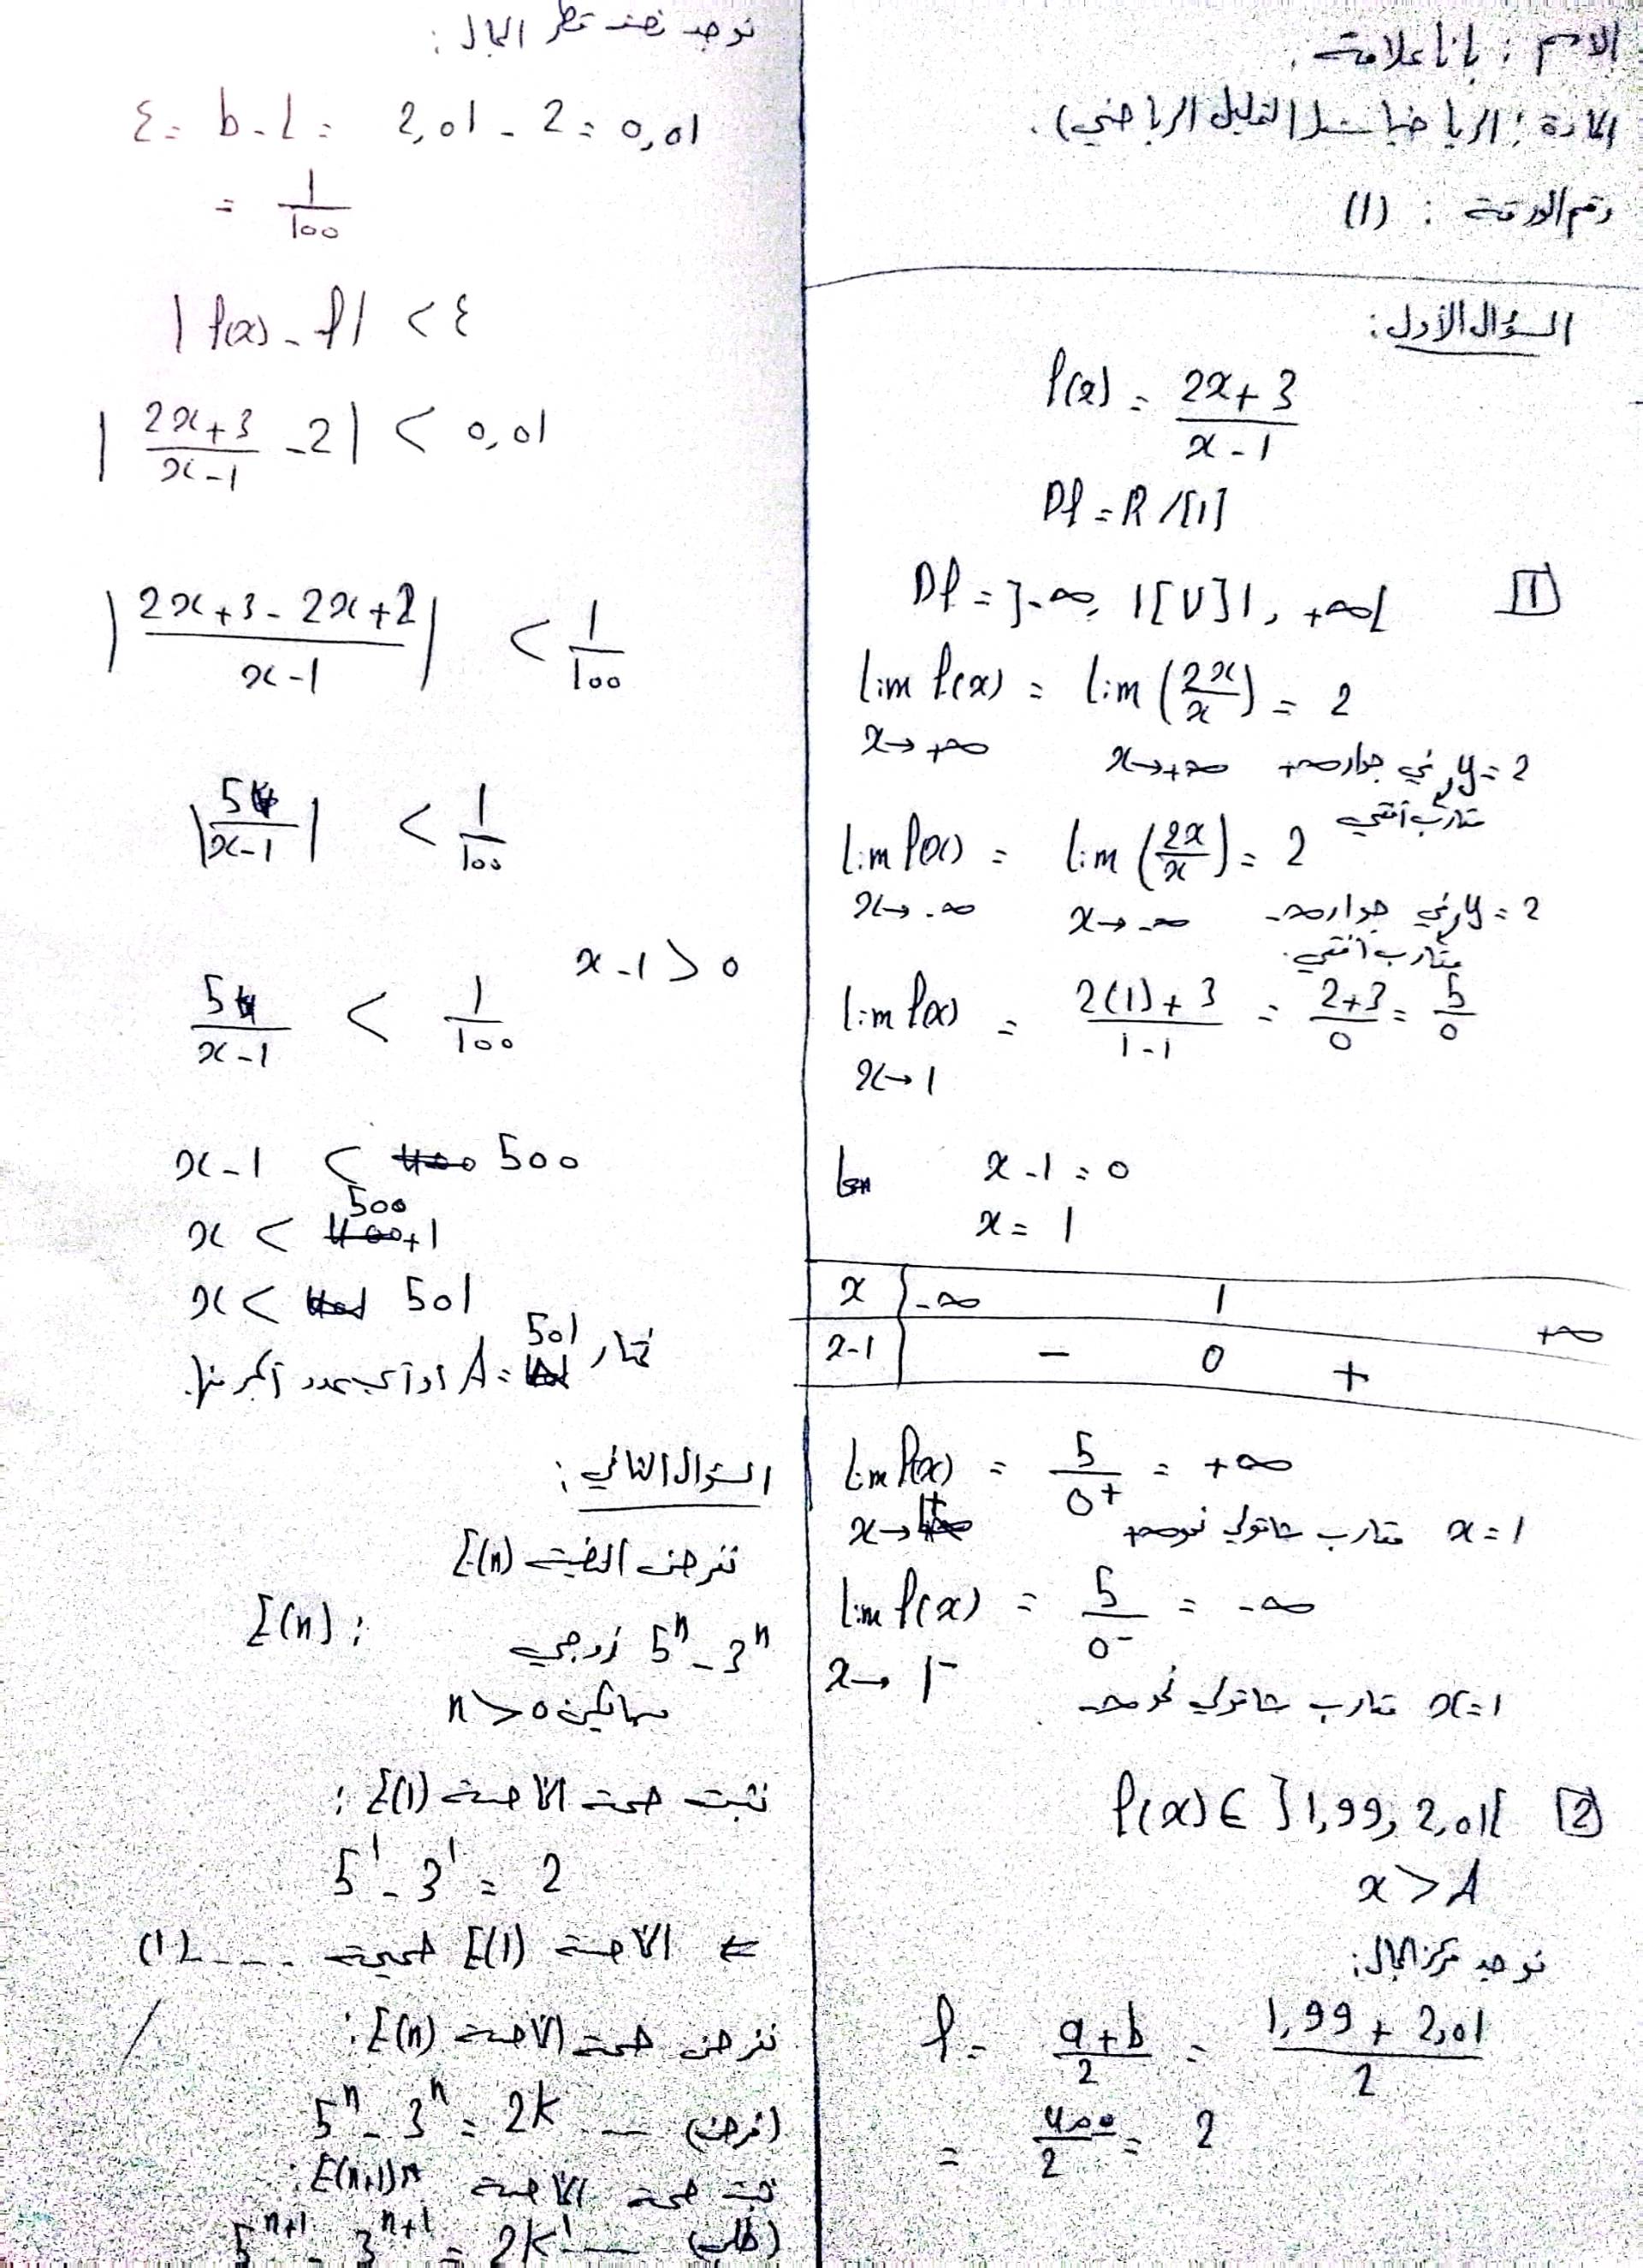 الاسم : بانا علامة .
المادة : الرياضيات (التحليل الرياضي) .
رقم الورقة : (1)
السؤال الأول :
f(x) = \frac{2x+3}{x-1}
Df = R /{1}
[1] Df = ]-∞, 1[ U ]1, +∞[
lim f(x) = lim (\frac{2x}{x}) = 2
x→+∞ x→+∞ y=2 في جوار +∞
مقارب أفقي
lim f(x) = lim (\frac{2x}{x}) = 2
x→-∞ x→-∞ y=2 في جوار -∞
مقارب أفقي .
lim f(x) = \frac{2(1)+3}{1-1} = \frac{2+3}{0} = \frac{5}{0}
x→1
x-1=0
x=1
x | -∞ 1 +∞
x-1 | - 0 +
lim f(x) = \frac{5}{0^+} = +∞
x→1^+ x=1 مقارب شاقولي نحو +∞
lim f(x) = \frac{5}{0^-} = -∞
x→1^-
x=1 مقارب شاقولي نحو -∞ .
[2] f(x) ∈ ]1,99, 2,01[
x > A
نوجد مركز المجال :
l = \frac{a+b}{2} = \frac{1,99 + 2,01}{2}
= \frac{4,00}{2} = 2
نوجد نصف قطر المجال :
ε = b - l = 2,01 - 2 = 0,01
= \frac{1}{100}
|f(x) - l| < ε
|\frac{2x+3}{x-1} - 2| < 0,01
|\frac{2x+3-2x+2}{x-1}| < \frac{1}{100}
|\frac{5}{x-1}| < \frac{1}{100}
x-1 > 0
\frac{5}{x-1} < \frac{1}{100}
x-1 < 500
x < 500+1
x < 501
نختار A = 501 أو أي عدد أكبر منها .
السؤال الثاني :
نفرض القضية E(n)
E(n) : 5^n - 3^n زوجي
مهما يكن n > 0
نثبت صحة الخاصة E(1) :
5^1 - 3^1 = 2
⇐ الخاصة E(1) صحيحة .... (1)
نفرض صحة الخاصة E(n) :
5^n - 3^n = 2k ... (فرض)
نثبت صحة الخاصة E(n+1) :
5^{n+1} - 3^{n+1} = 2k' ... (طلب)